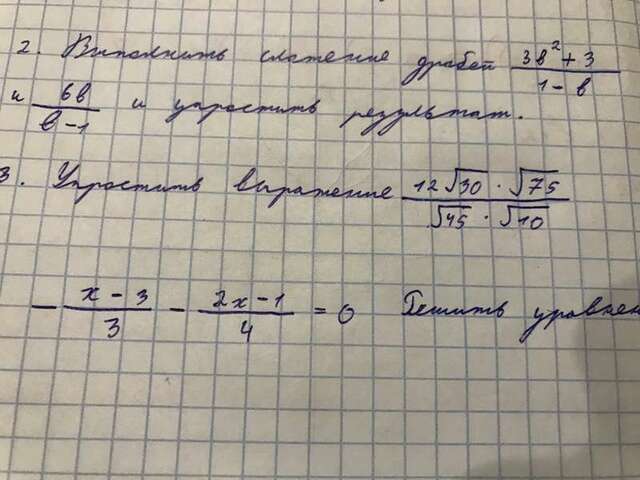 2. Выполнить сложение дробей (3b² + 3)/(1 - b)
и 6b/(b - 1) и упростить результат.
3. Упростить выражение (12√30 · √75)/(√45 · √10)
- (x - 3)/3 - (2x - 1)/4 = 0 Решить уравнен